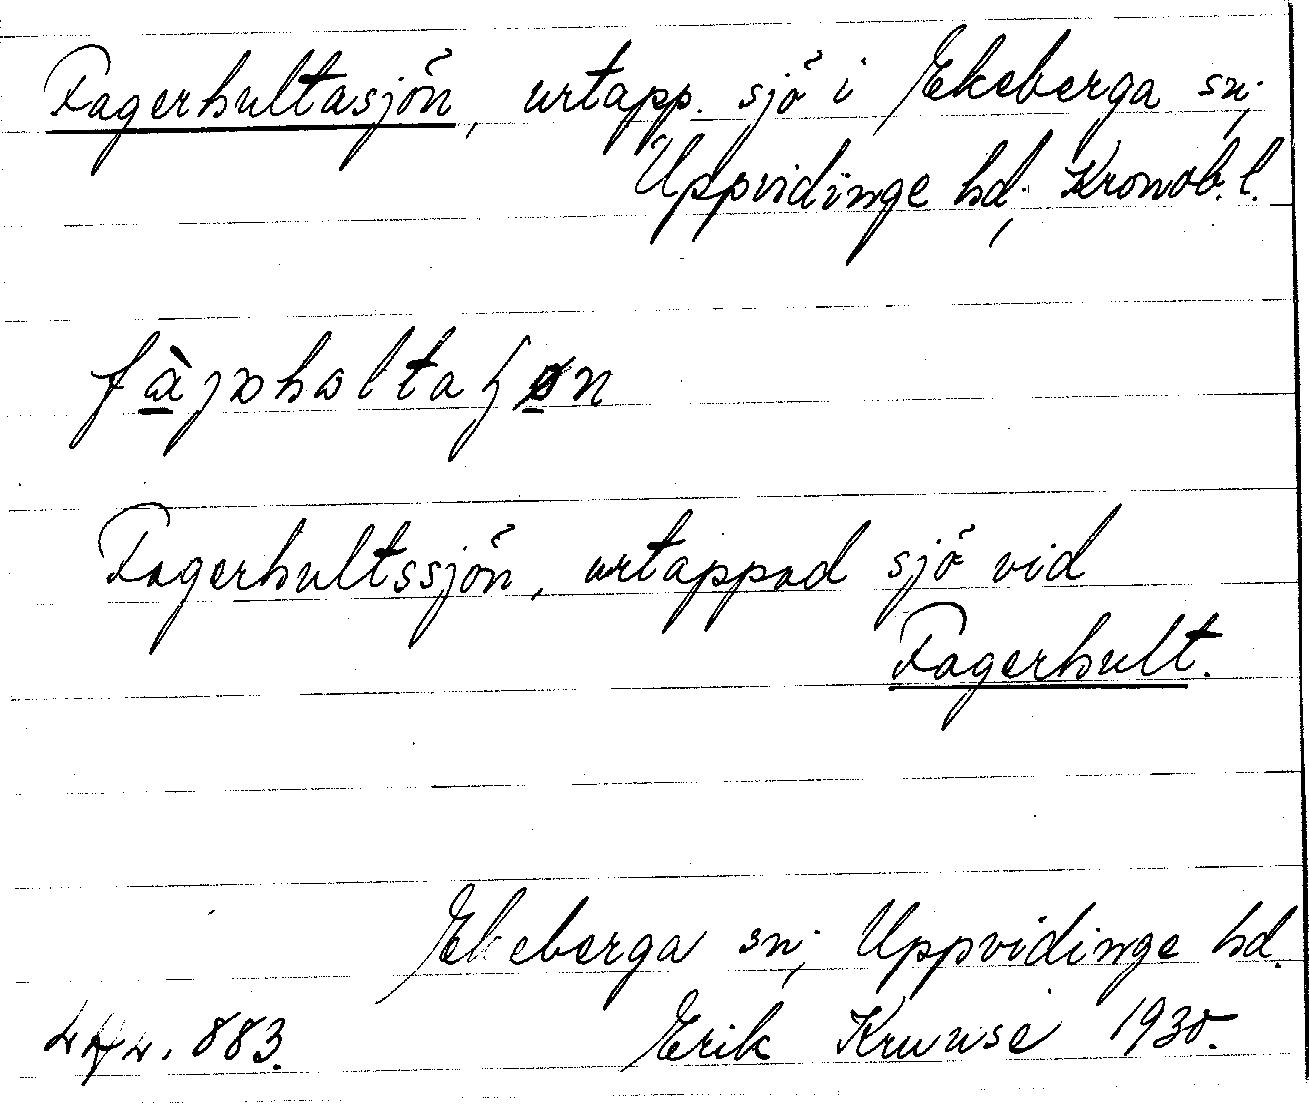 Fagerhultasjön, urtapp. sjö i Ekeberga sn;
Uppvidinge hd; Kronob. l.
Fagerhultssjön, urtappad sjö vid
Fagerhult.
Ekeberga sn; Uppvidinge hd.
883. Erik Kruuse 1930.